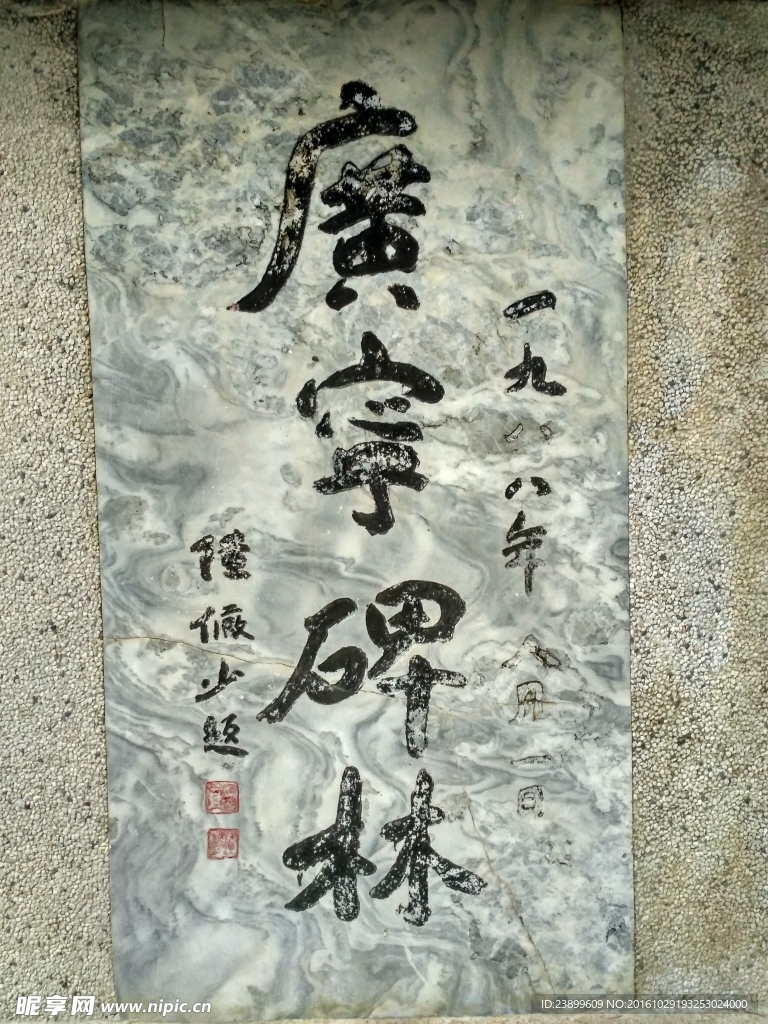 一九八八年八月一日
廣寧碑林
陸儆少題
昵享网 www.nipic.cn
ID:23899609 NO:20161029193253024000